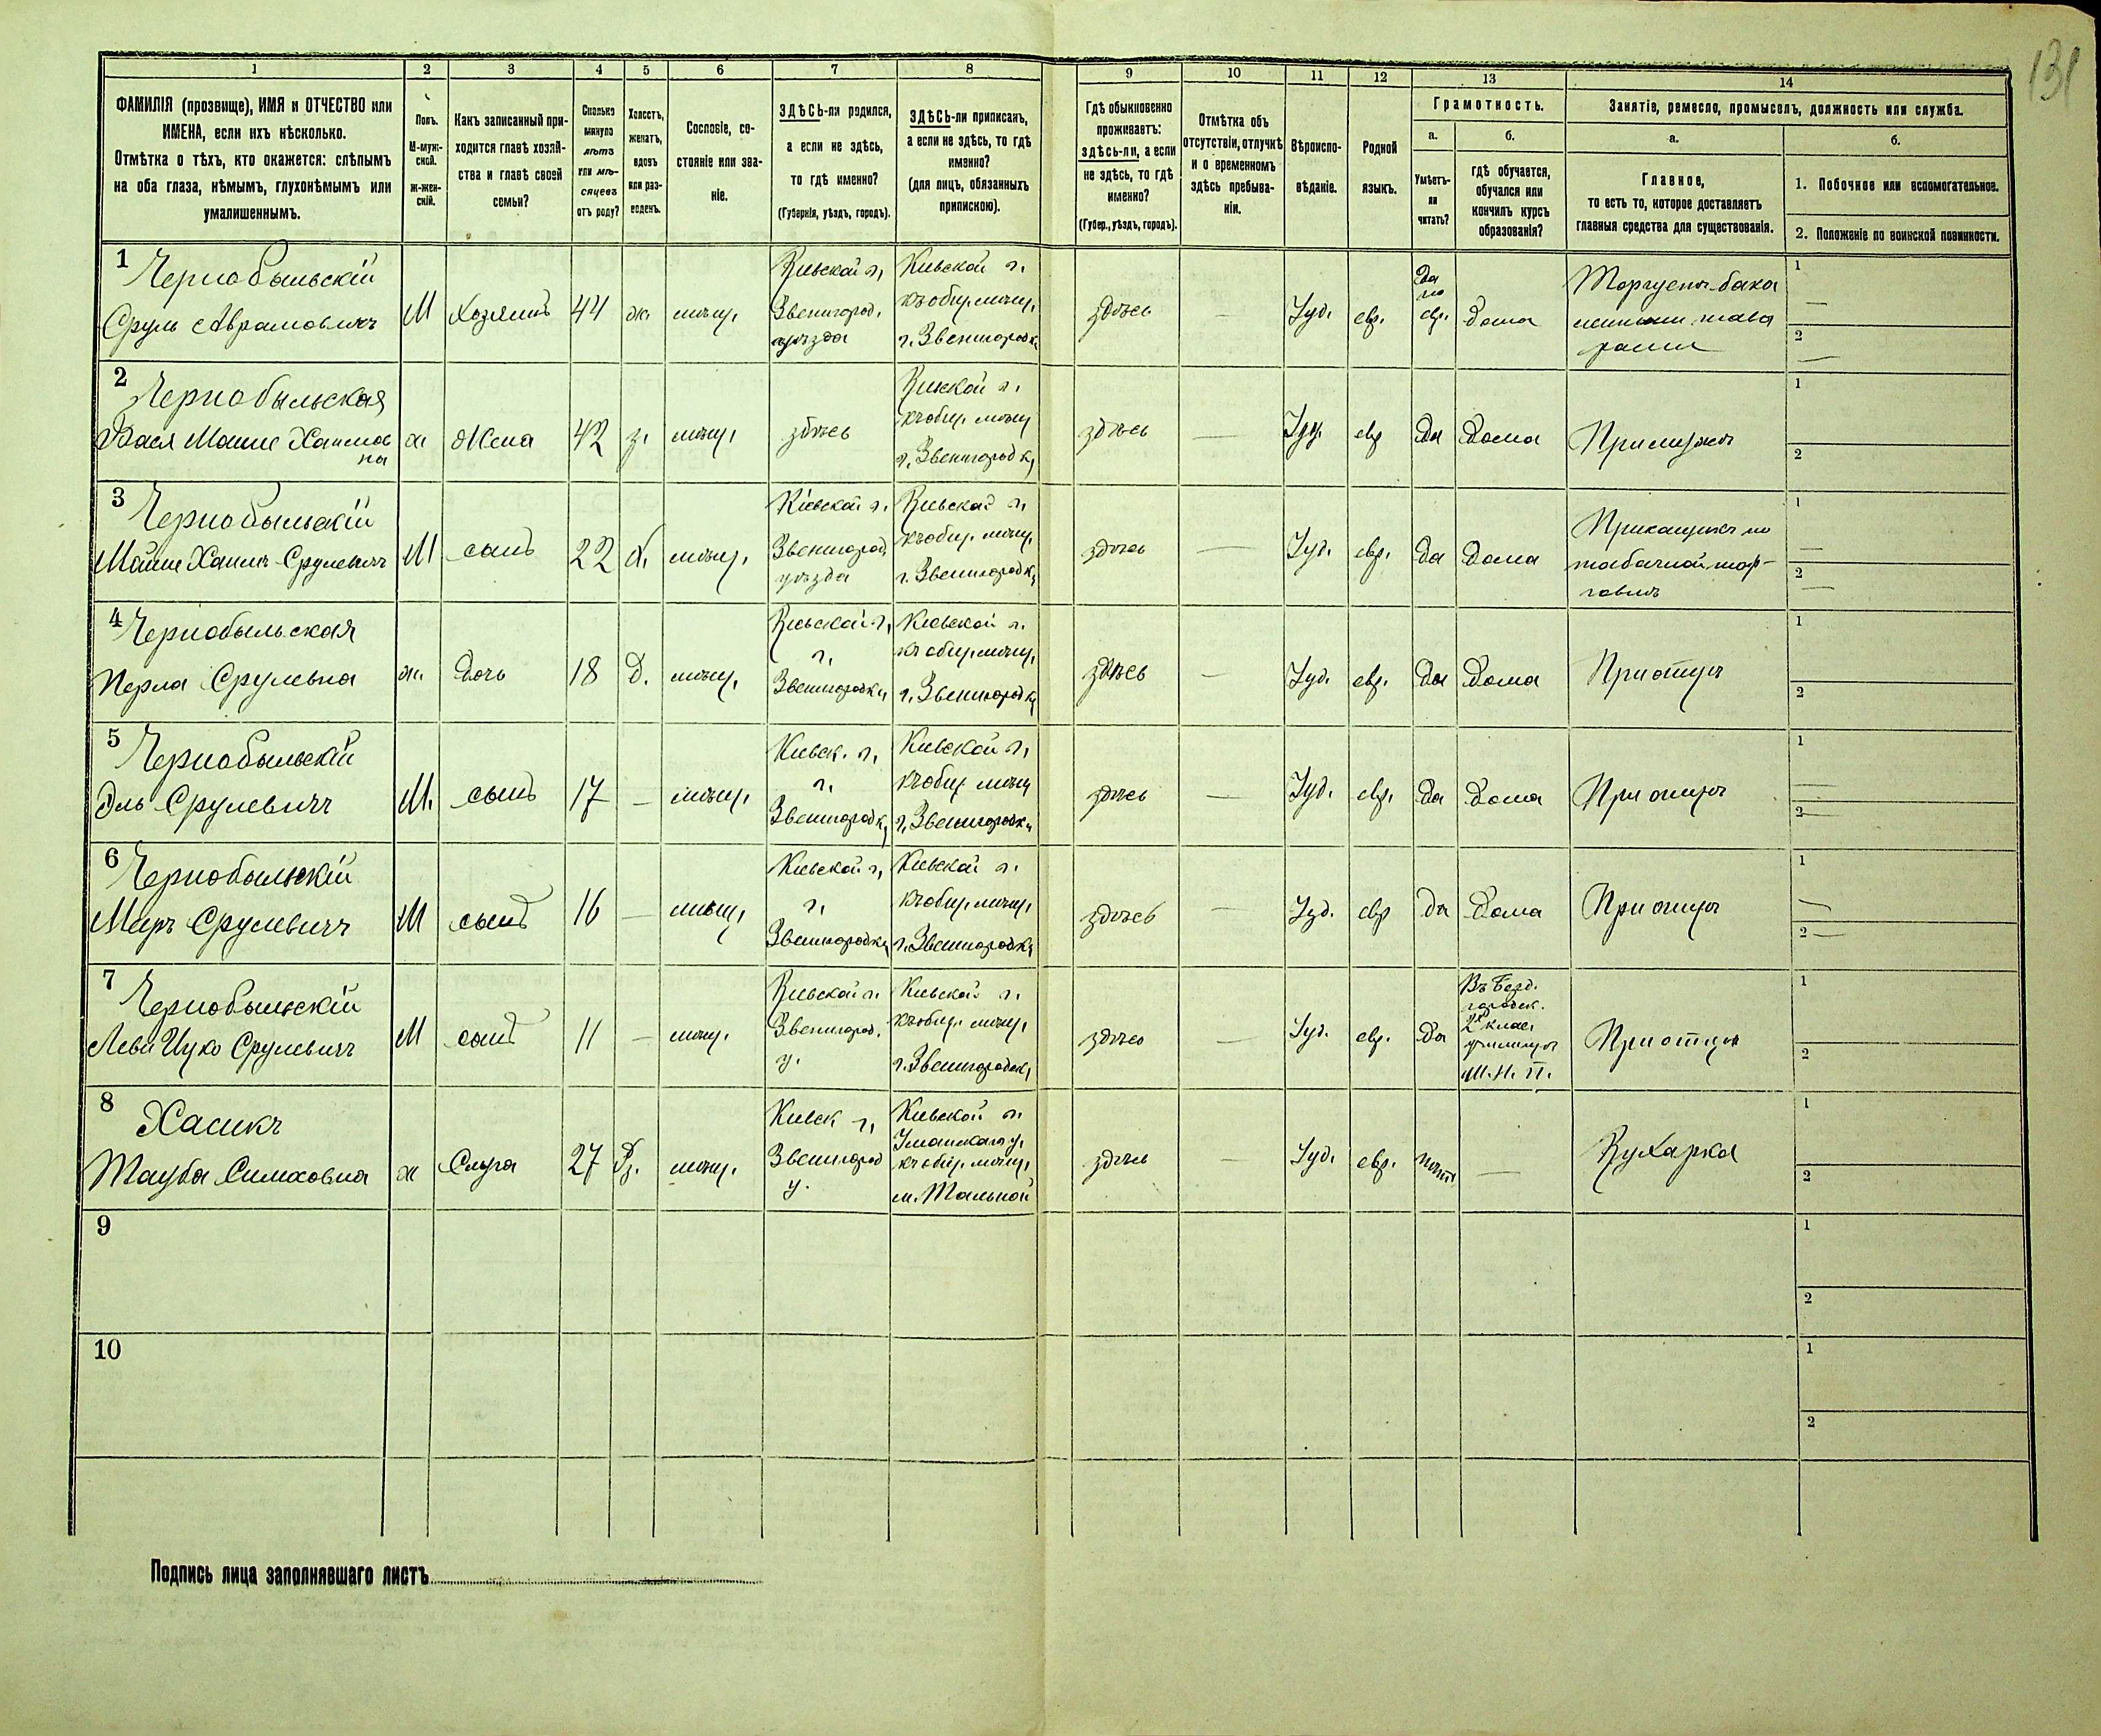 131
1
2
3
4
5
6
7
8
9
10
11
12
13
14
ФАМИЛІЯ (прозвище), ИМЯ и ОТЧЕСТВО или
ИМЕНА, если ихъ нѣсколько.
Отмѣтка о тѣхъ, кто окажется: слѣпымъ
на оба глаза, нѣмымъ, глухонѣмымъ или
умалишеннымъ.
Полъ.
М-муж-
ской.
Ж-жен-
скій.
Какъ записанный при-
ходится главѣ хозяй-
ства и главѣ своей
семьи?
Сколько
минуло
лѣтъ
или мѣ-
сяцевъ
отъ роду?
Холостъ,
женатъ,
вдовъ
или раз-
веденъ.
Сословіе, со-
стояніе или зва-
ніе.
ЗДѢСЬ-ли родился,
а если не здѣсь,
то гдѣ именно?
(Губернія, уѣздъ, городъ).
ЗДѢСЬ-ли приписанъ,
а если не здѣсь, то гдѣ
именно?
(для лицъ, обязанныхъ
припискою).
Гдѣ обыкновенно
проживаетъ:
здѣсь-ли, а если
не здѣсь, то гдѣ
именно?
(Губер., уѣздъ, городъ).
Отмѣтка объ
отсутствіи, отлучкѣ
и о временномъ
здѣсь пребыва-
ніи.
Вѣроиспо-
вѣданіе.
Родной
языкъ.
Грамотность.
а.
Умѣетъ-
ли
читать?
б.
гдѣ обучается,
обучался или
кончилъ курсъ
образованія?
Занятіе, ремесло, промыселъ, должность или служба.
а.
Главное,
то есть то, которое доставляетъ
главныя средства для существованія.
б.
1. Побочное или вспомогательное.
2. Положеніе по воинской повинности.
1
Чернобыльскій
Сруль Аврамовичъ
М
Хозяинъ
44
ж.
мѣщ.
Кіевской г.,
Звенигород.
уѣзда
Кіевской г.
къ общ. мѣщ.
г. Звенигородк.
здѣсь
—
Іуд.
евр.
Да
по
евр.
дома
Торгуетъ бака
лейными това
рами
1
—
2
—
2
Чернобыльская
Бася Маше Хаимов
на
ж
Жена
42
з.
мѣщ.
здѣсь
Кіевской г.
къ общ. мѣщ
г. Звенигородк.
здѣсь
—
Іуд.
евр
Да
Дома
При мужѣ
1
2
3
Чернобыльскій
Мойше Хаимъ Срулевичъ
М
сынъ
22
х.
мѣщ.
Кіевской г.
Звенигород.
уѣзда
Кіевской г.
къ общ. мѣщ.
г. Звенигородк.
здѣсь
—
Іуд.
евр.
Да
Дома
Прикащикъ по
табачной тор-
говлѣ
1
—
2
—
4
Чернобыльская
Перла Срулевна
ж.
Дочь
18
Д.
мѣщ.
Кіевской г.,
г.
Звенигородк.
Кіевской г.
къ общ. мѣщ.
г. Звенигородк.
здѣсь
—
Іуд.
евр.
Да
Дома
При отцѣ
1
2
5
Чернобыльскій
Эль Срулевичъ
М.
сынъ
17
—
мѣщ.
Кіевск. г.,
г.
Звенигородк.
Кіевской г.
къ общ. мѣщ
г. Звенигородк.
здѣсь
—
Іуд.
евр.
Да
Дома
При отцѣ
1
—
2
—
6
Чернобыльскій
Меръ Срулевичъ
М
сынъ
16
—
мѣщ.
Кіевской г.,
г.
Звенигородк.
Кіевской г.
къ общ. мѣщ.
г. Звенигородк.
здѣсь
—
Іуд.
евр
да
Дома
При отцѣ
1
—
2
—
7
Чернобыльскій
Леви Ицко Срулевичъ
М
сынъ
11
—
мѣщ.
Кіевской г.
Звенигород.
у.
Кіевской г.
къ общ. мѣщ.
г. Звенигородк.
здѣсь
—
Іуд.
евр.
Да
Въ
городск.
2х клас.
училищѣ
М. Н. П.
При отцѣ
1
2
8
Хасикъ
Тауба Симховна
ж
Слуга
27
мѣщ.
Кіевск г.,
Звенигород
у.
Кіевской г.
Уманскаго у.
къ общ. мѣщ.
м. Тальной
здѣсь
—
Іуд.
евр.
—
Кухарка
1
2
9
1
2
10
1
2
Подпись лица заполнявшаго листъ